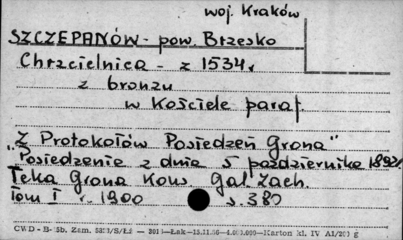 woj. Kraków
SZCZEPANÓW - pow. Brzesko
Chrzcielnica - z 1534r
z bronzu
w Kościele paraf.
"Z Protokołów Posiedzeń Grona"
Posiedzenie z dnia 5 października 1892r.
Teka Grona Kons. Gal. Zach.
Tom I r. 1900 s. 380